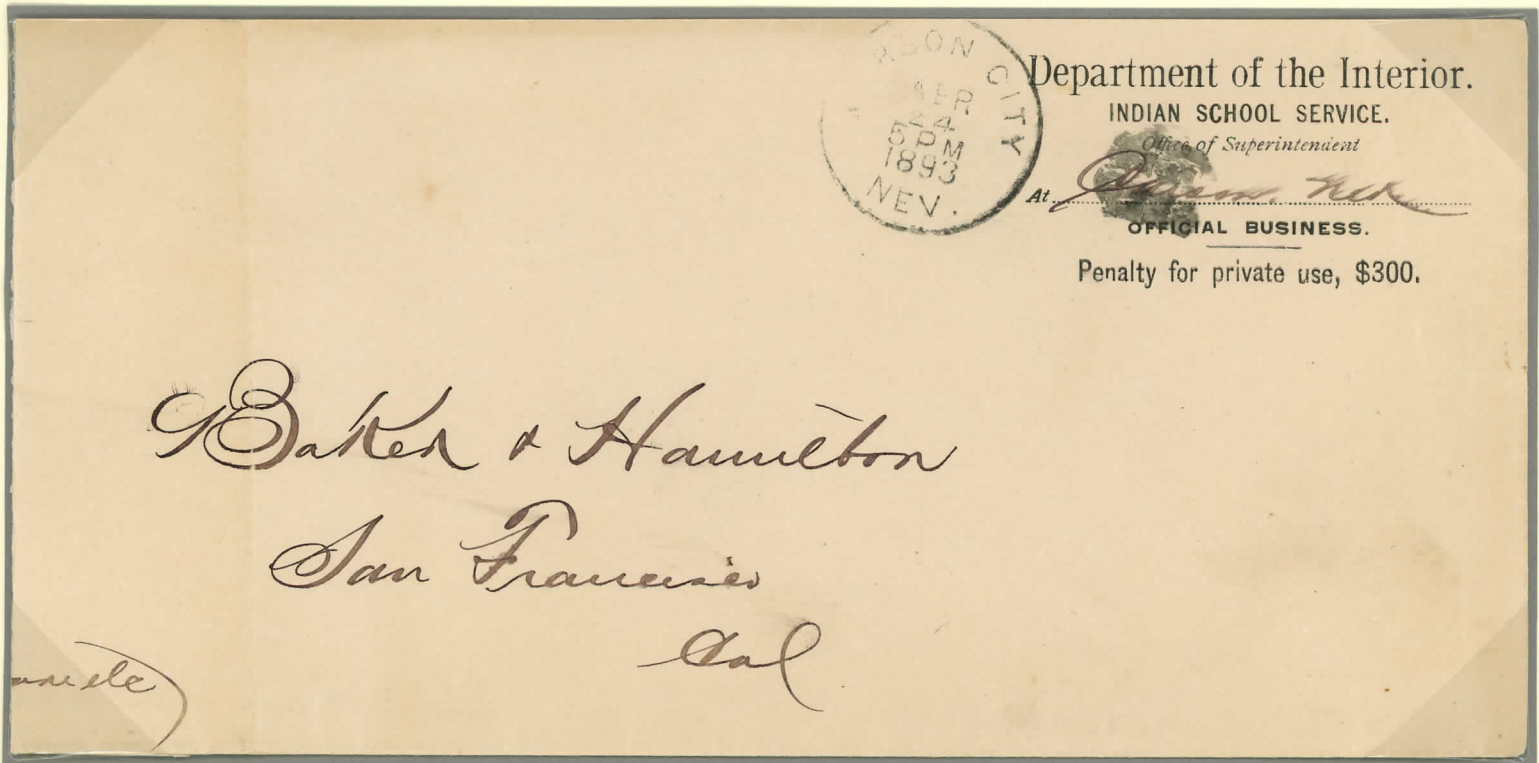 RSON CITY
APR
24
5 PM
1893
NEV.
Department of the Interior.
INDIAN SCHOOL SERVICE.
Office of Superintendent
At
OFFICIAL BUSINESS.
Penalty for private use, $300.
Baker & Hamilton
San Francisco
Cal